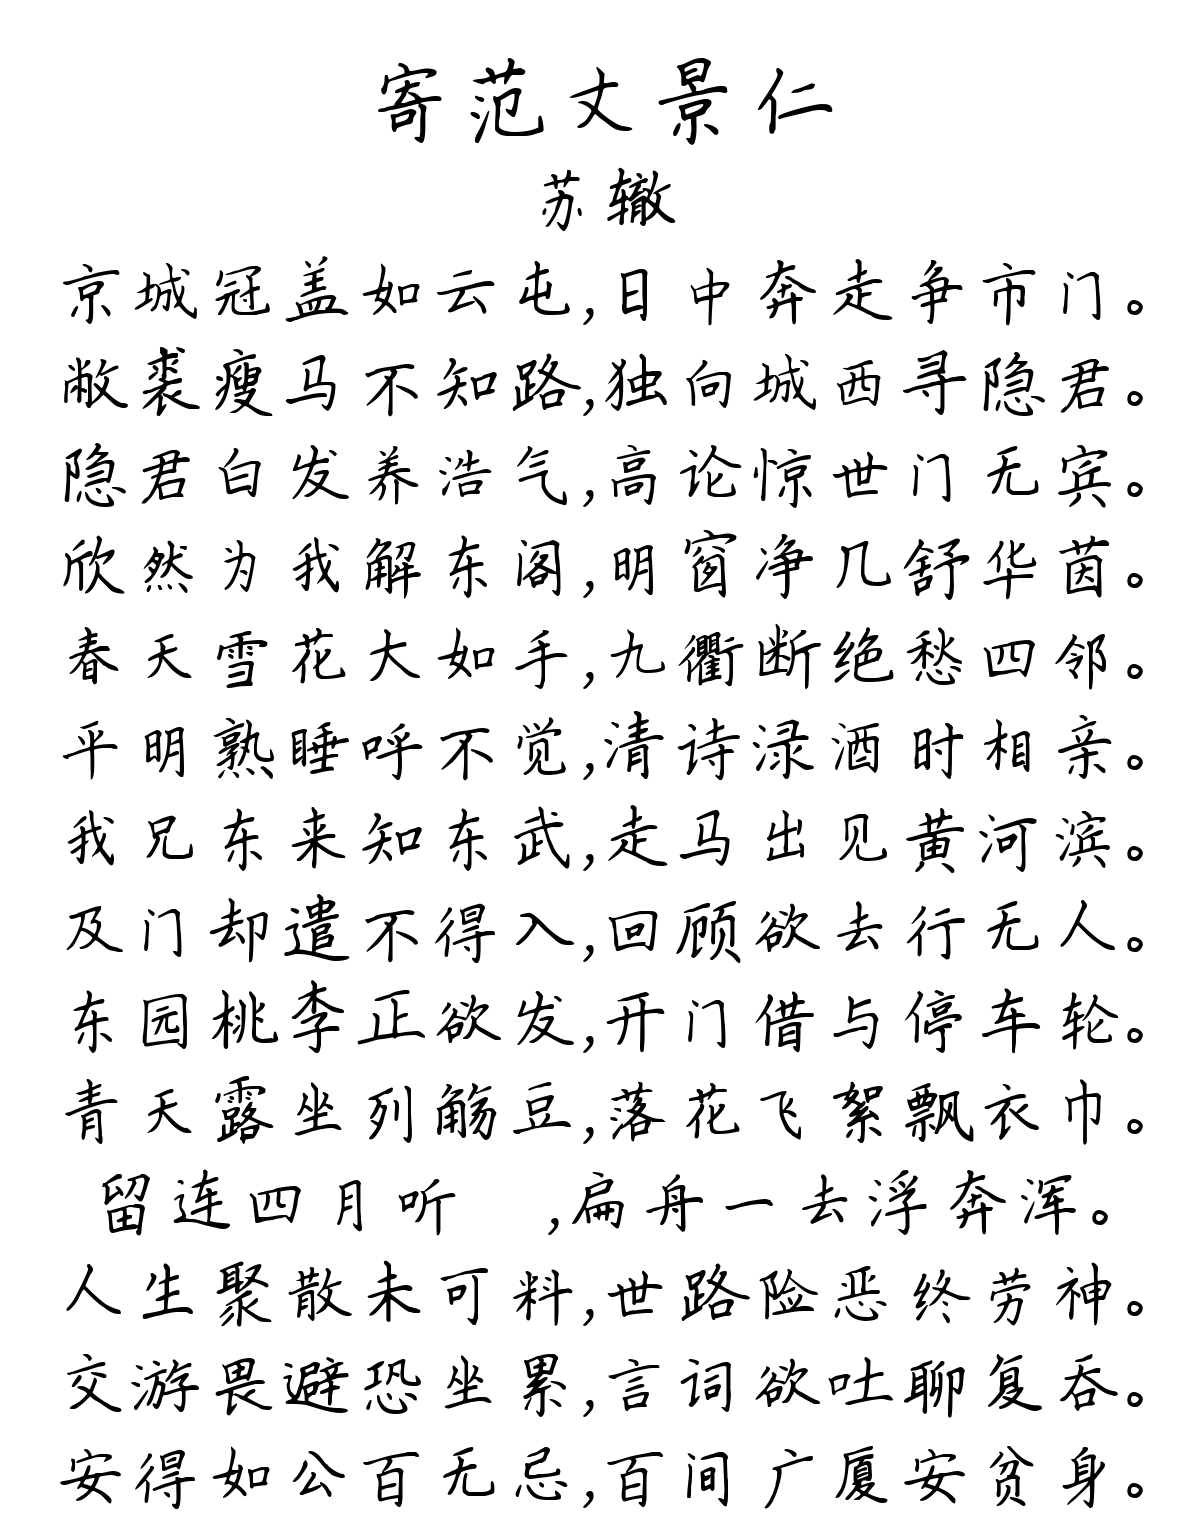 寄范丈景仁
苏辙
京城冠盖如云屯,日中奔走争市门。
敝裘瘦马不知路,独向城西寻隐君。
隐君白发养浩气,高论惊世门无宾。
欣然为我解东阁,明窗净几舒华茵。
春天雪花大如手,九衢断绝愁四邻。
平明熟睡呼不觉,清诗渌酒时相亲。
我兄东来知东武,走马出见黄河滨。
及门却遣不得入,回顾欲去行无人。
东园桃李正欲发,开门借与停车轮。
青天露坐列觞豆,落花飞絮飘衣巾。
留连四月听 ,扁舟一去浮奔浑。
人生聚散未可料,世路险恶终劳神。
交游畏避恐坐累,言词欲吐聊复吞。
安得如公百无忌,百间广厦安贫身。